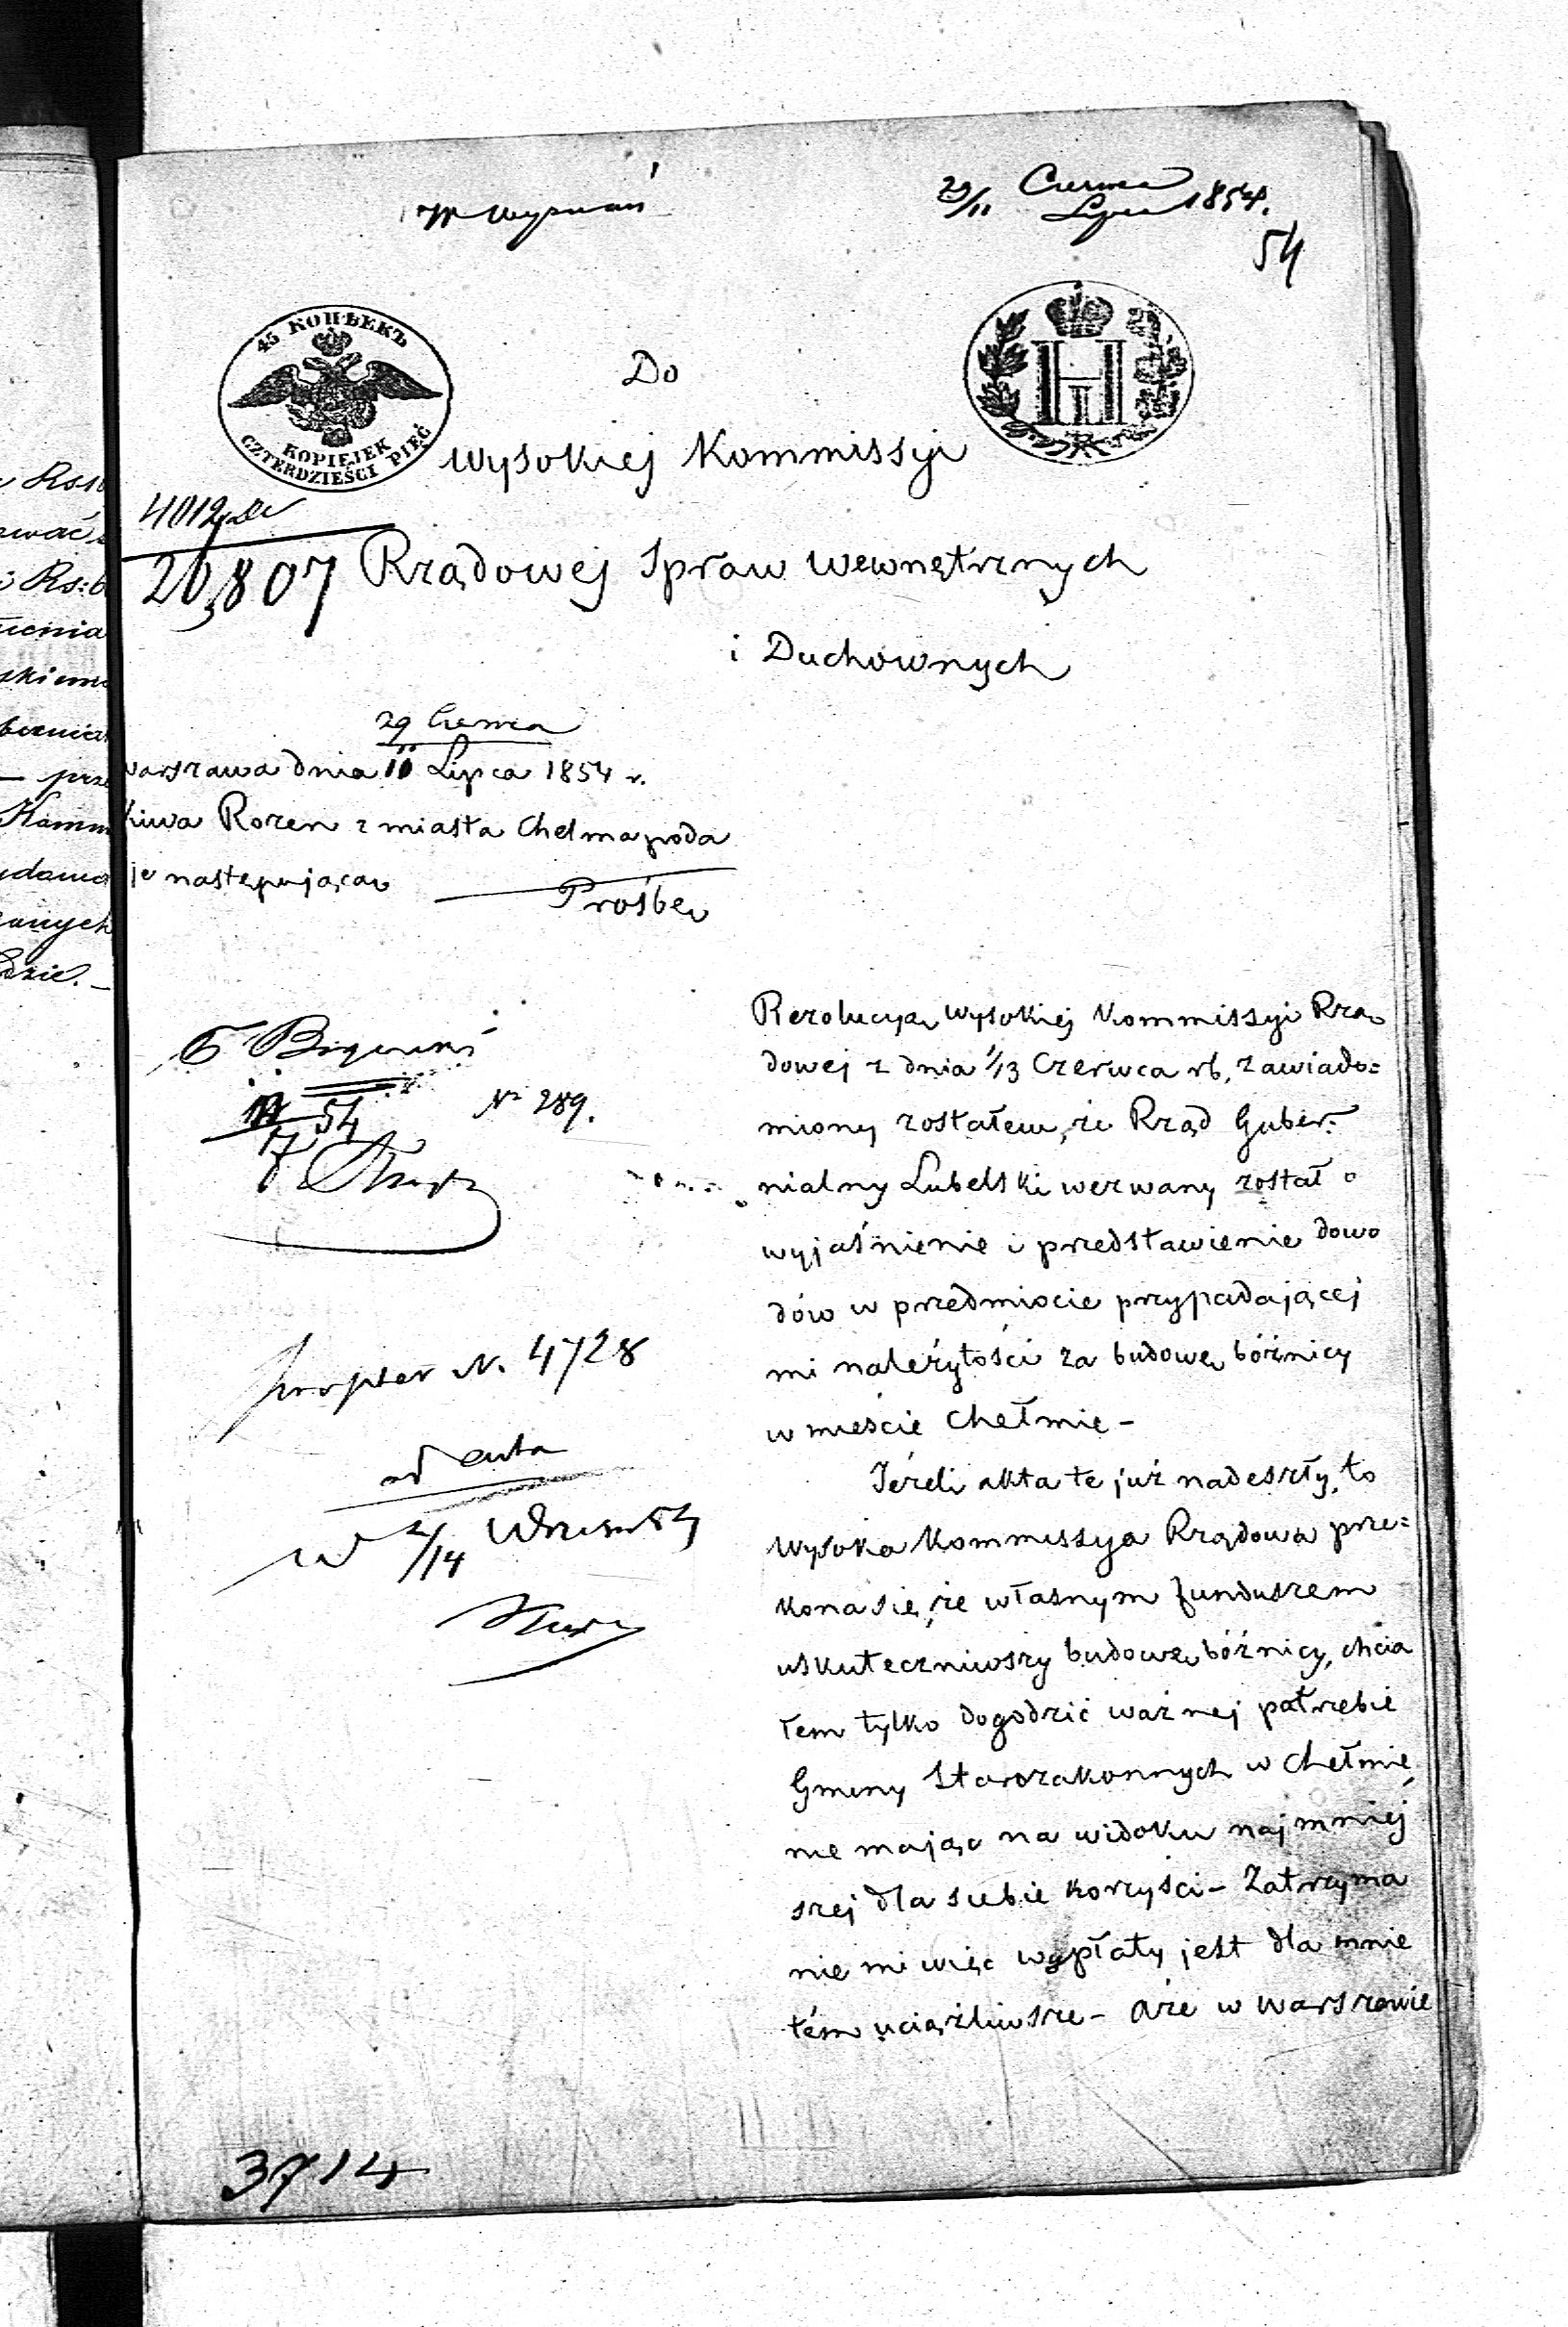 W Wyznań
29/11 Czerwca Lipca 1854.
54
45 КОПѢЕКЪ
KOPIEJEK
CZTERDZIEŚCI PIĘĆ
Н I
Do
Wysokiej Kommissyi
4012
20,807 Rządowej Spraw Wewnętrznych
i Duchownych
29 Czerwca
Warszawa dnia 11 Lipca 1854 r.
Kiwa Rozen z miasta Chełma poda
je następującą
Prośbę
Rezolucyą Wysokiej Kommissyi Rzą
dowej z dnia 1/13 Czerwca rb. zawiado=
miony zostałem, że Rząd Guber=
nialny Lubelski wezwany został o
wyjaśnienie i przedstawienie dowo
dów w przedmiocie przypadającej
mi należytości za budowę bóżnicy
w mieście Chełmie –
Jeżeli akta te już nadeszły, to
Wysoka Kommissya Rządowa prze=
kona się, że własnym funduszem
uskuteczniwszy budowę bóżnicy, chcia
łem tylko dogodzić ważnej potrzebie
Gminy Starozakonnych w Chełmie
nie mając na widoku najmniej
szej dla siebie korzyści – Zatrzyma
nie mi więc wypłaty jest dla mnie
tém uciążliwsze – że w Warszawie
54
Nº 289.
N. 4728
ad acta
2/14 Wrześ 54
3714